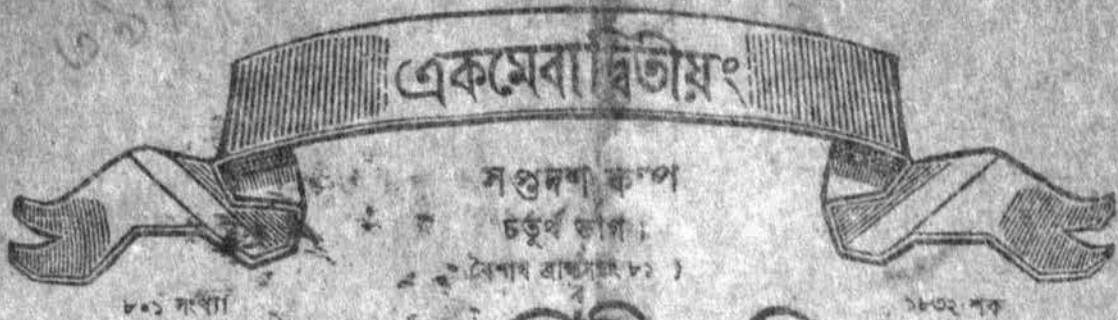 একমেবাদ্বিতীয়ং
সপ্তদশ কল্প
চতুর্থ ভাগ।
বৈশাখ ব্রাহ্মসম্বৎ ৮১।
৮০১ সংখ্যা
১৮৩২ শক